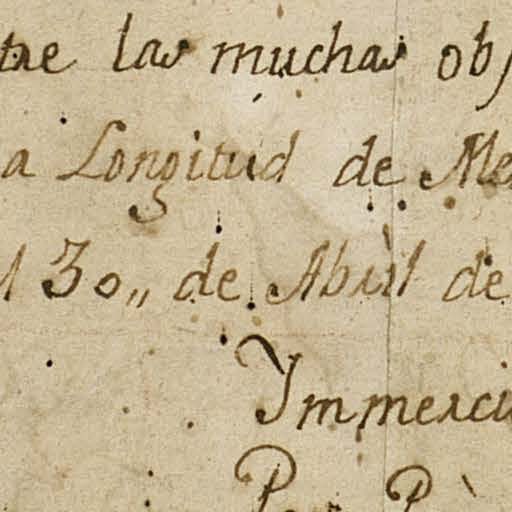 tre las muchas obs
a Longitud de Me
l 30,, de Abril de
Ymmerci